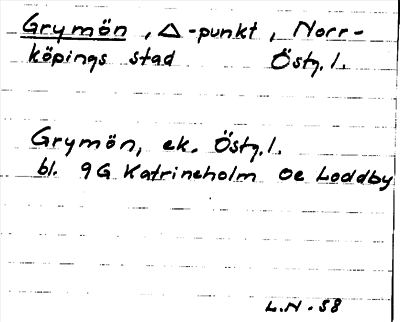 Grymön, △-punkt, Norr-
köpings stad Östg.l.
Grymön, ek. Östg.l.
bl. 9G Katrineholm Oe Loddby
L.N-58